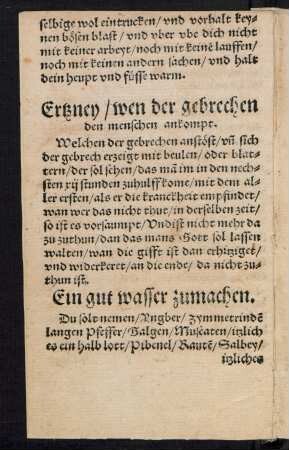 selbige wol eintrucken/ vnd vorhalt key-
nen bösen blast/ vnd vber vbe dich nicht
mit keiner arbeyt/ noch mit keinē lauffen/
noch mit keinen andern sachen/ vnd halt
dein heupt vnd füsse warm.
Ertzney/ wen der gebrechen
den menschen ankompt.
Welchen der gebrechen anstöst/ vñ sich
der gebrech erzeigt mit beulen/ oder blat-
tern/ der sol sehen/ das mā im in den nech-
sten xij stunden zuhulff kome/ mit dem al-
ler ersten/ als er die kranckheit empfindet/
wan wer das nicht thut/ in derselben zeit/
so ist es vorsaumpt/ Vnd ist nicht mehr da
zu zuthun/ dan das mans Gott sol lassen
walten/ wan die gifft ist dan erhitziget/
vnd widerkeret/ an die ende/ da nicht zu-
thun ist.
Ein gut wasser zumachen.
Du solt nemen/ Yngber/ Zymmetrindē
langen Pfeffer/ Galgen/ Muscaten/ itzlich
es ein halb lott/ Pibenel/ Rautē/ Salbey/
itzliches